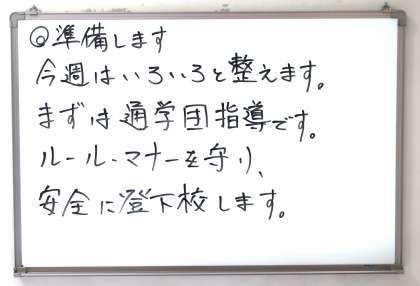 ◎準備します
今週はいろいろと整えます。
まずは通学団指導です。
ルール・マナーを守り、
安全に登下校します。